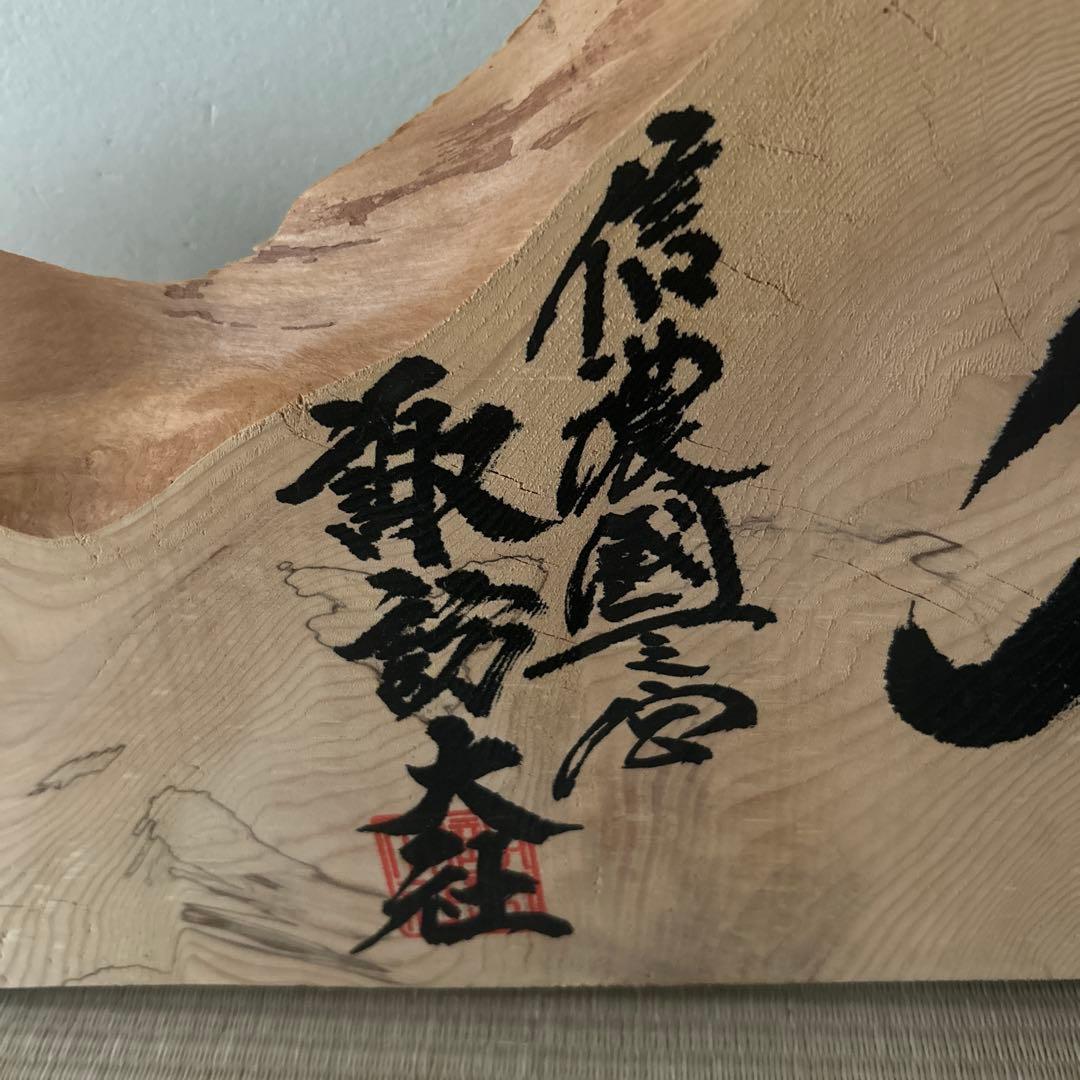 信濃國一之宮
諏訪大社